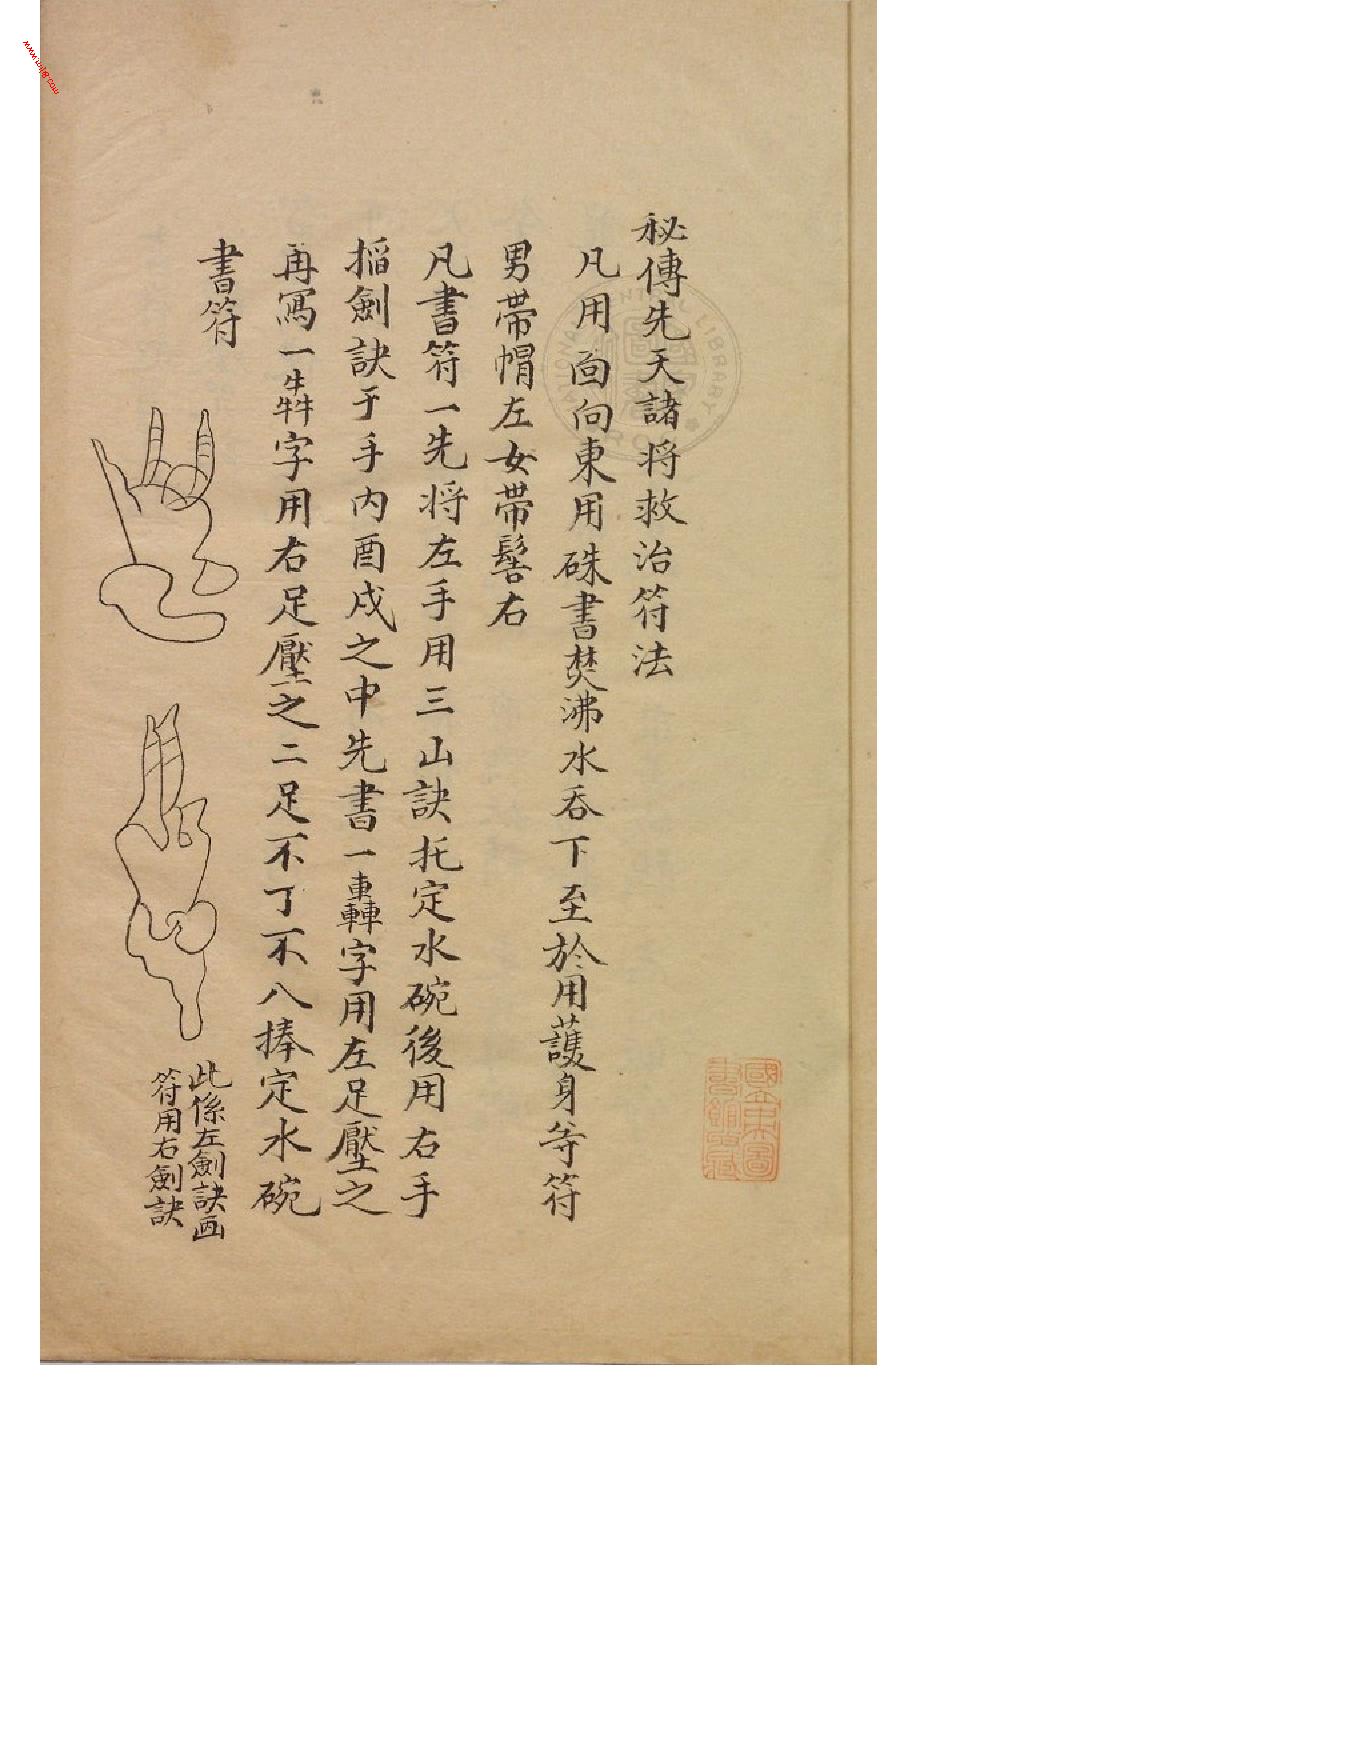 秘傳先天諸将救治符法
凡用面向東用硃書焚沸水吞下至於用護身等符
男帶帽左女帶髻右
凡書符一先将左手用三山訣托定水碗後用右手
搯劍訣于手內酉戌之中先書一轟字用左足壓之
再寫一犇字用右足壓之二足不丁不八捧定水碗
書符
此係左劍訣画
符用右劍訣
國立中央圖
書館收藏
NATIONAL CENTRAL LIBRARY